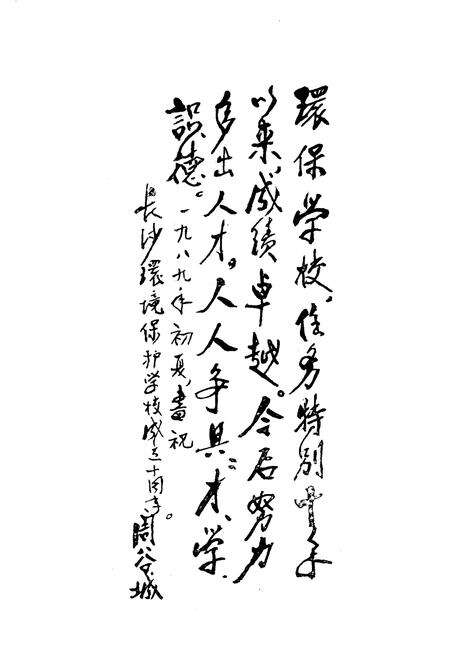 環保学校，任务特别重，十年
以来，成绩卓越。今后努力
多出人才。人人争具“才、学、
識、德”。
一九八九年初夏，書祝
長沙環境保护学校成立十周年。
周谷城